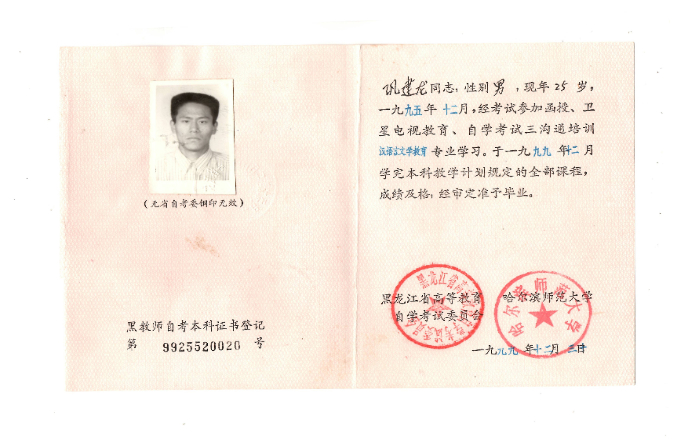 (无省自考委钢印无效)
黑教师自考本科证书登记
第 9925520020 号
巩建龙同志,性别男,现年25岁,
一九九五年十二月,经考试参加函授、卫
星电视教育、自学考试三沟通培训
汉语言文学教育专业学习。于一九九九年十二月
学完本科教学计划规定的全部课程,
成绩及格,经审定准予毕业。
黑龙江省高等教育
自学考试委员会
哈尔滨师范大学
哈尔滨师范大学
一九九九年十二月